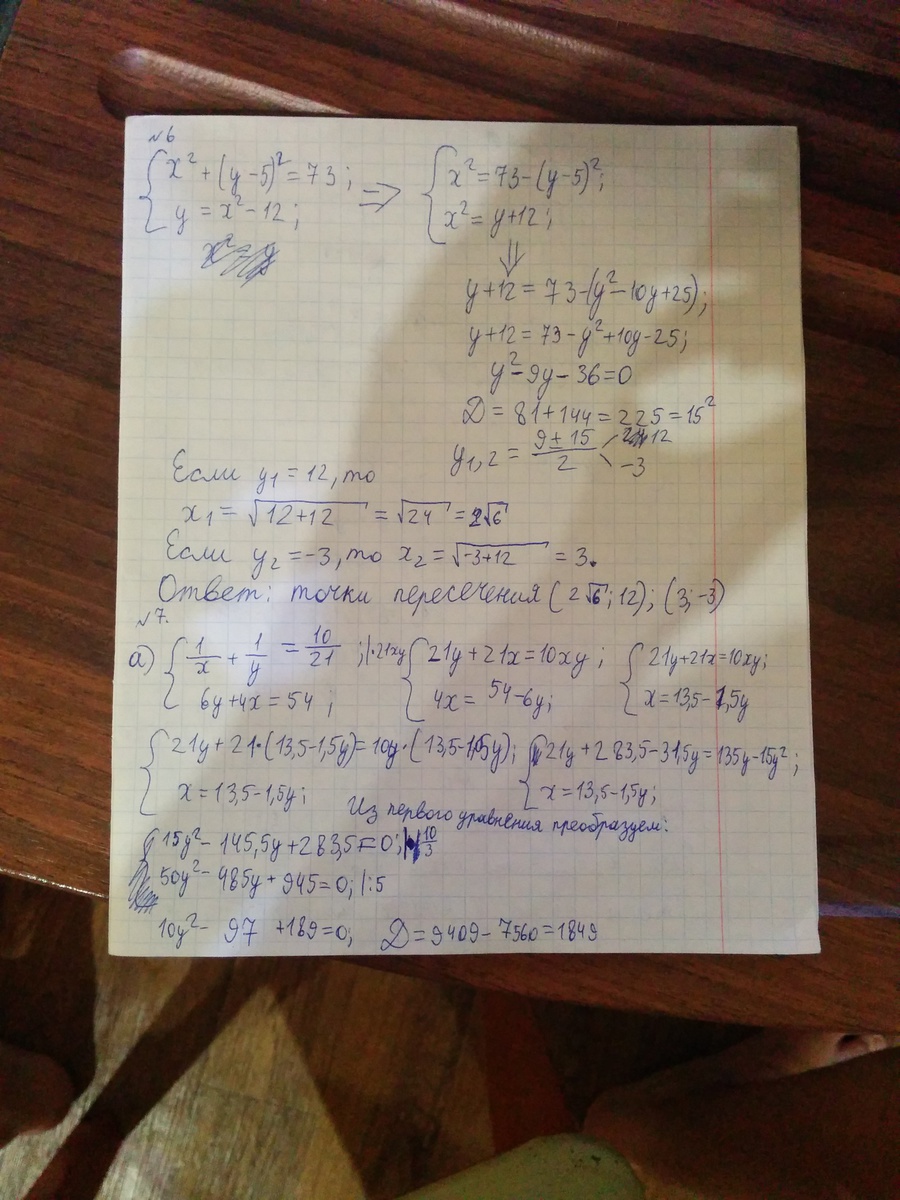 №6
{ x² + (y-5)² = 73; ⇒ { x² = 73-(y-5)²;
y = x² - 12; x² = y+12;
⇓
y+12 = 73-(y²-10y+25);
y+12 = 73-y²+10y-25;
y²-9y-36=0
D = 81+144 = 225 = 15²
y₁,₂ = (9±15)/2 12
-3
Если y₁ = 12, то
x₁ = √(12+12) = √24 = 2√6
Если y₂ = -3, то x₂ = √(-3+12) = 3.
Ответ: точки пересечения (2√6; 12); (3; -3)
№7.
а) { 1/x + 1/y = 10/21 ; |·21xy { 21y + 21x = 10xy ; { 21y+21x=10xy;
6y+4x = 54 ; 4x = 54-6y; x = 13,5-1,5y
{ 21y + 21·(13,5-1,5y) = 10y·(13,5-1,5y); { 21y + 283,5-31,5y = 135y-15y² ;
x = 13,5-1,5y; x = 13,5-1,5y;
Из первого уравнения преобразуем:
15y² - 145,5y + 283,5 = 0; |·10/3
50y² - 485y + 945 = 0; |:5
10y² - 97 + 189 = 0; D = 9409 - 7560 = 1849